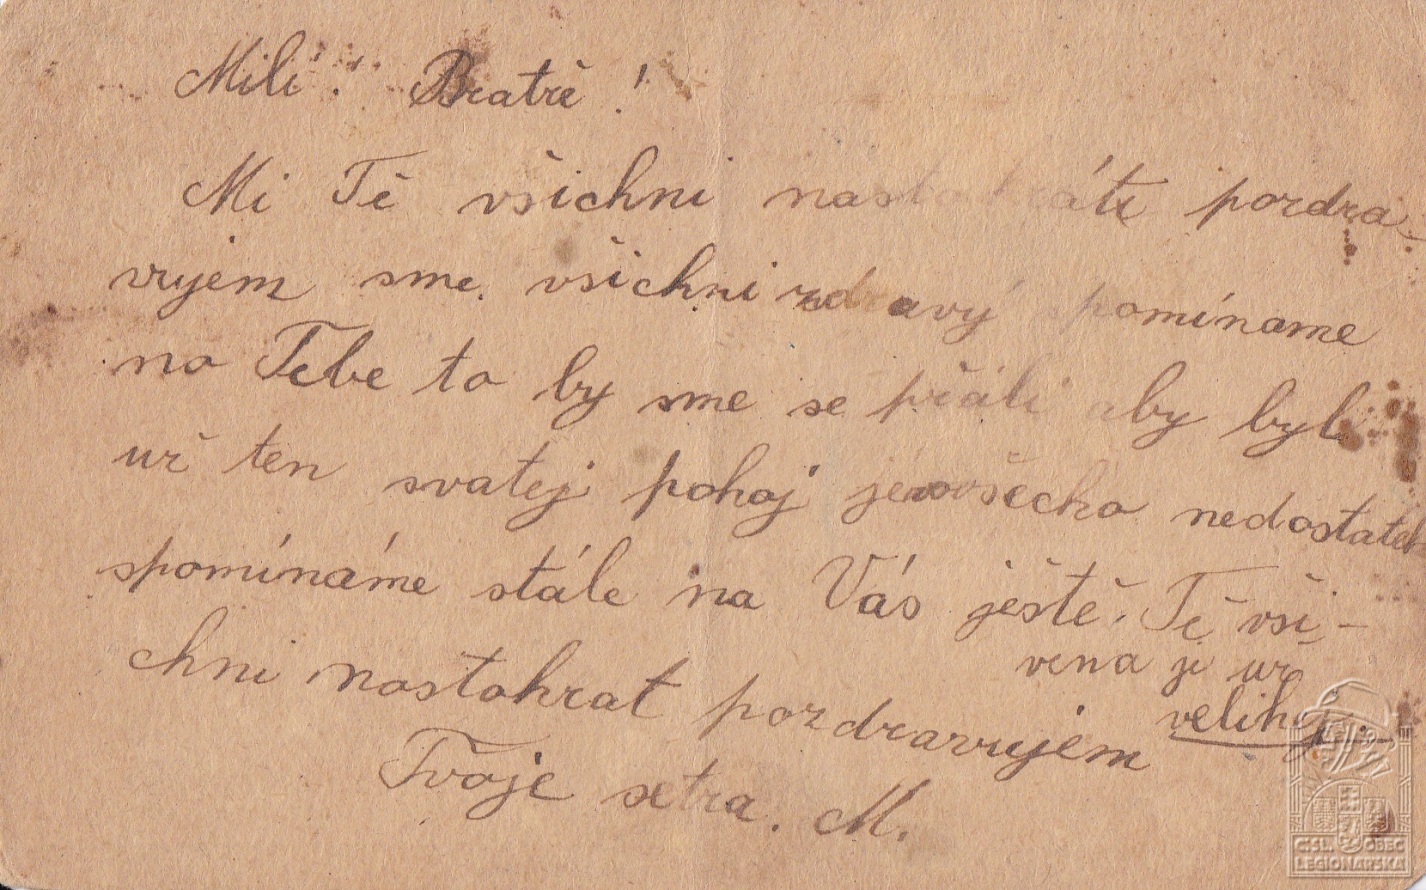 Milí! Bratře!
Mi Tě všichni nastokráte pozdra-
vujem sme všichni zdravý spomíname
na Tebe to by sme se přáli aby byl
už ten svatej pokoj je všecko nedostatek
spomínáme stále na Vás ještě. Tě vši-
chni nastokrat pozdravujem
vena je už
velikej.
Tvoje setra. M.
ČSL. OBEC
LEGIONÁŘSKÁ